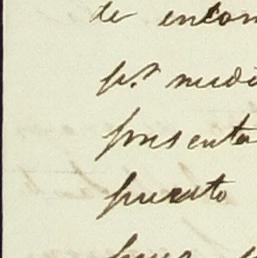 de encon
p.r medi
presenta
puesto